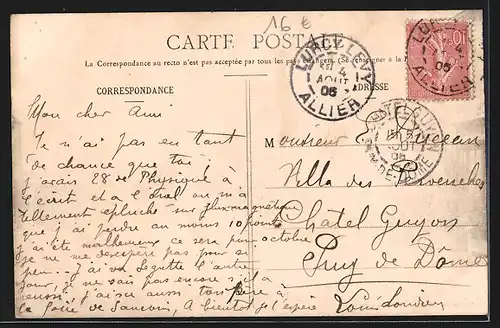 16 €
CARTE POSTALE
La Correspondance au recto n'est pas acceptée par tous les pays étrangers. (Se renseigner à la
CORRESPONDANCE
ADRESSE
LURCY-LEVY
4
AOUT
06
ALLIER
LURCY
4
06
ALLIER
CHATELGUYON
AOUT
06
PUY-DE-DOME
Mon cher Ami
Je n'ai pas eu tant
de chance que toi,
J'avais 28 de Physique à
l'écrit et à l'oral on m'a
tellement épluché sur
que j'ai perdu au moins 10 points
j'ai été malheureux ce sera pour octobre
je ne me désespère pas pour si
peu. J'ai vu l'autre
jour, je ne sais pas encore s'il a
réussi. J'ai aussi ton père à
la foire de Sancoins, A bientôt je l'espère
Monsieur
Villa des
Chatel Guyon
Puy de Dôme